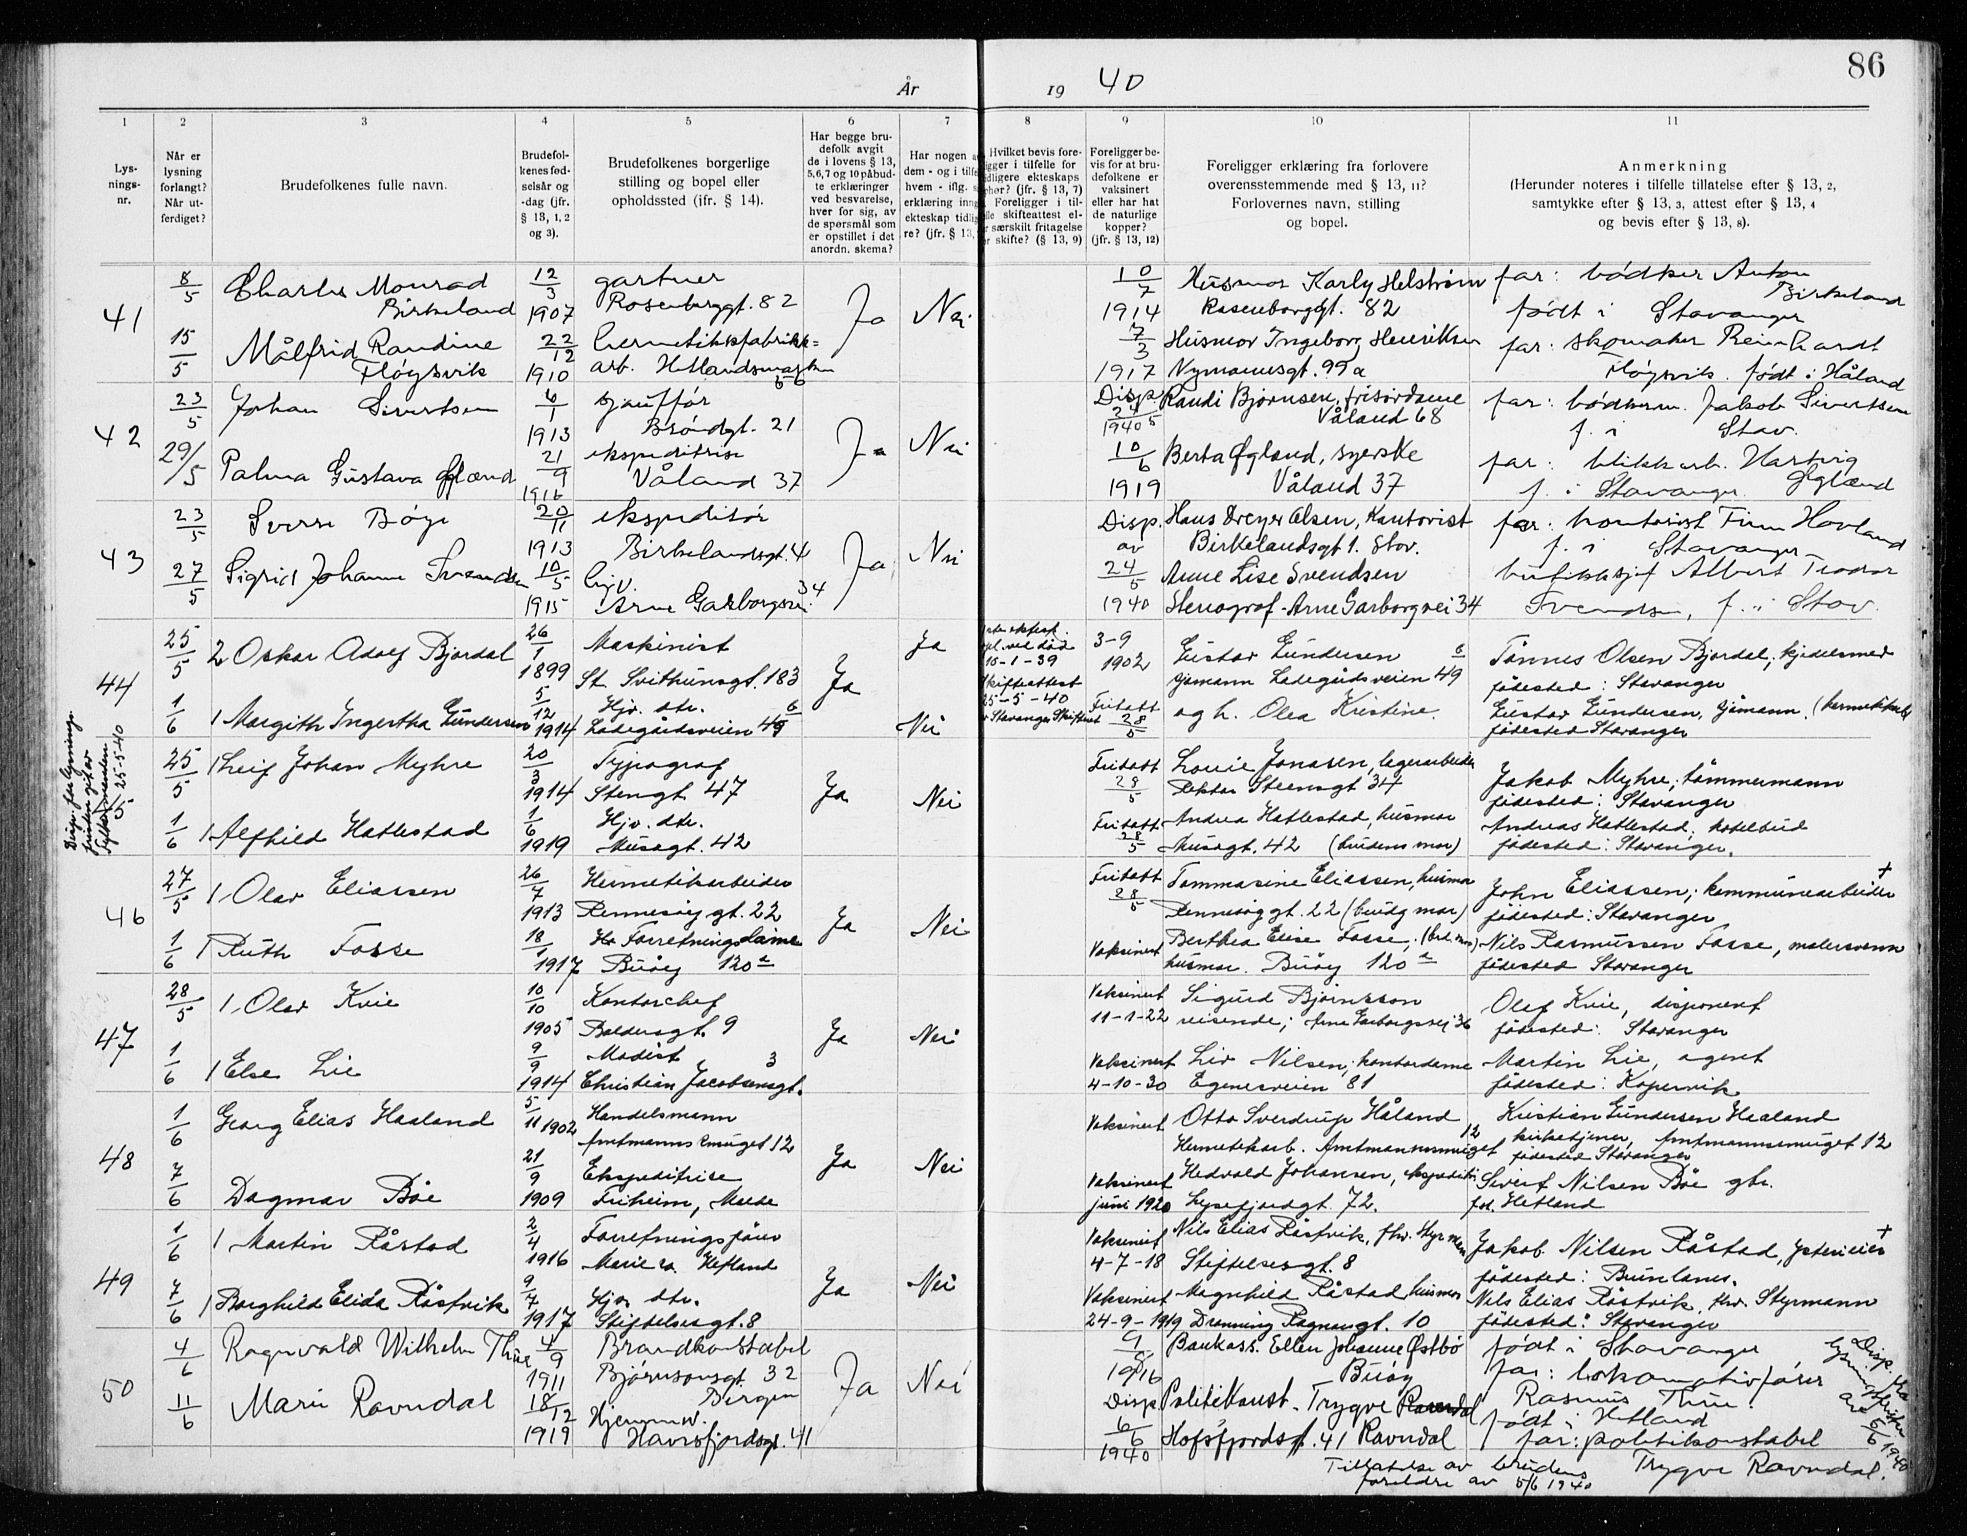 86
År 19 40
1 2 3 4 5 6 7 8 9 10 11
Lys-
nings-
nr.
Når er
lysning
forlangt?
Når ut-
ferdiget?
Brudefolkenes fulle navn.
Brudefol-
kenes fød-
selsår og
-dag (jfr.
§ 13, 1, 2
og 3).
Brudefolkenes borgerlige
stilling og bopel eller
opholdssted (jfr. § 14).
Har begge bru-
defolk avgit
de i lovens § 13,
5, 6, 7 og 10 påbud-
te erklæringer
ved besvarelse,
hver for sig, av
de spørsmål som
er opstillet i det
anordn. skema?
Har nogen a
dem - og i tilfe
hvem - iflg. s
erklæring inng
ekteskap tidlig
re? (jfr. § 13,
Hvilket bevis fore-
ligger i tilfelle for
tidligere ekteskaps
ophør? (jfr. § 13, 7)
Foreligger i til-
elle skifteattest el-
er særskilt fritagelse
or skifte? (§ 13, 9)
Foreligger be-
vis for at bru-
defolkene er
vaksinert
eller har hat
de naturlige
kopper?
(jfr. § 13, 12)
Foreligger erklæring fra forlovere
overensstemmende med § 13, 11?
Forlovernes navn, stilling
og bopel.
Anmerkning
(Herunder noteres i tilfelle tillatelse efter § 13, 2,
samtykke efter § 13, 3, attest efter § 13, 4
og bevis efter § 13, 8).
41
8/5 Charles Monrad
Birkeland
12/3 1907
gartner
Rosenberggt. 82
Ja Nei
10/7 1914
Husmor Karly Helstrøm
Rosenborggt. 82
far: bødker Anton
Birkeland
født i Stavanger
15/5 Målfrid Randine
Fløysvik
22/12 1910
hermetikkfabrikk=
arb. Hetlandsmarken
66
7/3 1917
Husmor Ingeborg Henriksen
Nymannsgt. 99a
far: skomaker Reinhardt
Fløysvik. født i Håland
42
23/5 Johan Sivertsen
6/1 1913
sjauffør
Brøndgt. 21
Ja Nei
Disp
24/5 1940
Randi Bjørnsen, frisørdame
Våland 68
far: bødkerm. Jakob Sivertsen
f. i Stav.
29/5 Palma Gustava Øglænd
21/9 1916
ekspeditrise
Våland 37
10/6 1919
Berta Øgland, syerske
Våland 37
far: blikkarb. Hartvig
Øglænd
f. i Stavanger
43
23/5 Sverre Bøye
20/11 1913
ekspeditør
Birkelandsgt. 4
Ja Nei
Disp.
av
24/5
1940
Hans Dreyer Olsen, Kontorist
Birkelandsgt 1. Stav.
far: kontorist Finn Hovland
f. i Stavanger
27/5 Sigrid Johanne Svendsen
10/5 1915
hjv.
Arne Garborgsvei 34
Anne Lise Svendsen
Stenograf - Arne Garborgvei 34
butikksjef Albert Teodor
Svendsen, f. i Stav.
44
25/5 2 Oskar Adolf Bjordal
26/1 1899
Maskinist
St. Svithunsgt. 183
Ja Ja
ved död
15-1-39
Skifteattest
25-5-40
Stavanger Skifterett
3-9
1902
Gustav Gundersen
sjømann Ladegårdsveien 49 6
Tönnes Olsen Bjordal; kjedelsmed
födested: Stavanger
1/6 1 Margith Ingertha Gundersen
5/12 1914
Hjv. dtr.
Ladegårdsveien 49 6
Nei
Fritatt
28/5
og h. Olea Kristine.
Gustav Gundersen, sjömann. (hermetikkarb
födested Stavanger
Disp. for lysning.
fristen git av
Fylkesmannen
25-5-40
25/5 1 Leif Johan Myhre
20/3 1914
Typograf
Stengt 47
Ja Nei
Fritatt
28/5
Louie Jonasen, lagerarbeider
Rektor Steensgt 34
Jakob Myhre; tömmermann
födested: Stavanger
1/6 1 Alfhild Hatlestad
1/6 1919
Hjv. dtr.
Musegt. 42
Fritatt
28/5
Andrea Hatlestad, husmor
Musegt. 42 (brudens mor)
Andreas Hatlestad; hotelbud
födested: Stavanger.
46
27/5 1 Olav Eliassen
26/7 1913
Hermetikarbeider
Rennesöygt. 22
Ja Nei
Fritatt
28/5
Tommasine Eliassen, husmor
Rennesöygt. 22 (brudg mor)
John Eliassen; kommunearbeider +
födested: Stavanger
1/6 1 Ruth Fosse
18/1 1917
Forretningsdame
Buöy 120 a
Vaksinert
Berthea Elise Fosse, (brd. mor)
husmor. Buöy 120 a
Nils Rasmussen Fosse, malersvenn
födested Stavanger
47
28/5 1 Olav Kvie
10/10 1905
Kontorchef
Baldersgt. 9
Ja Nei
Vaksinert
11-1-22
Sigurd Björnsson
reisende; Arne Garborgsvei 36
Olaf Kvie, disponent
födested: Stavanger
1/6 1 Else Lie
9/9 1914
Modist
Christian Jacobsensgt. 3
Vaksinert
4-10-30
Liv Nilsen; kontordame
Egenesveien 81
Martin Lie, agent
födested: Kopervik
48
1/6 Georg Elias Haaland
5/11 1902
Handelsmann
Amtmannsmuget 12
Ja Nei
Vaksinert
Otto Sverdrup Håland
Hermetikarb. Amtmannsmuget 12
Kristian Gundersen Haaland
kirketjener, Amtmannsmuget 12
födested Stavanger
7/6 Dagmar Böe
21/9 1909
Ekspeditrise
Friheim, Madla
Vaksinert
juni 1920
Hedvald Johansen, ekspeditr
Lysefjordgt. 72.
Sivert Nilsen Böe gbr.
fst. Hetland
49
1/6 1 Martin Råstad
2/4 1916
Forretningsförer
Hetland
Ja Nei
Vaksinert
4-7-18
Nils Elias Råstvik, fhv. Styrmann
Stiftelsesgt. 8
Jakob Nilsen Råstad, ysterieier +
födested: Brunlanes.
7/6 1 Borghild Elida Råstvik
9/7 1917
Hjv. dtr.
Stiftelsesgt. 8
Vaksinert
24-9-1919
Magnhild Råstad husmor
Dronning Ragnasgt. 10
Nils Elias Råstvik, fhv. Styrmann
födested: Stavanger
50
4/6 Ragnvald Wilhelm Thue
4/9 1911
Brandkonstabel
Bjørnsonsgt 32
Bergen
Ja Nei
1916
Bankass. Ellen Johanne Østbø
Buøy
født i Stavanger
far: lokomotivfører
Rasmus Thue.
11/6 Marie Ravndal
18/12 1919
Hjemmev.
Havrsfjordsgt. 41
Disp
6/6
1940
Politikonst. Trygve Ravndal
Hafsfjordsgt. 41 Ravndal
født i Hetland
far: politikonstabel
Trygve Ravndal.
Disp. fra
lysningsfristen
av 5/6 1940
Tillatelse av brudens
foreldre av 5/6 1940